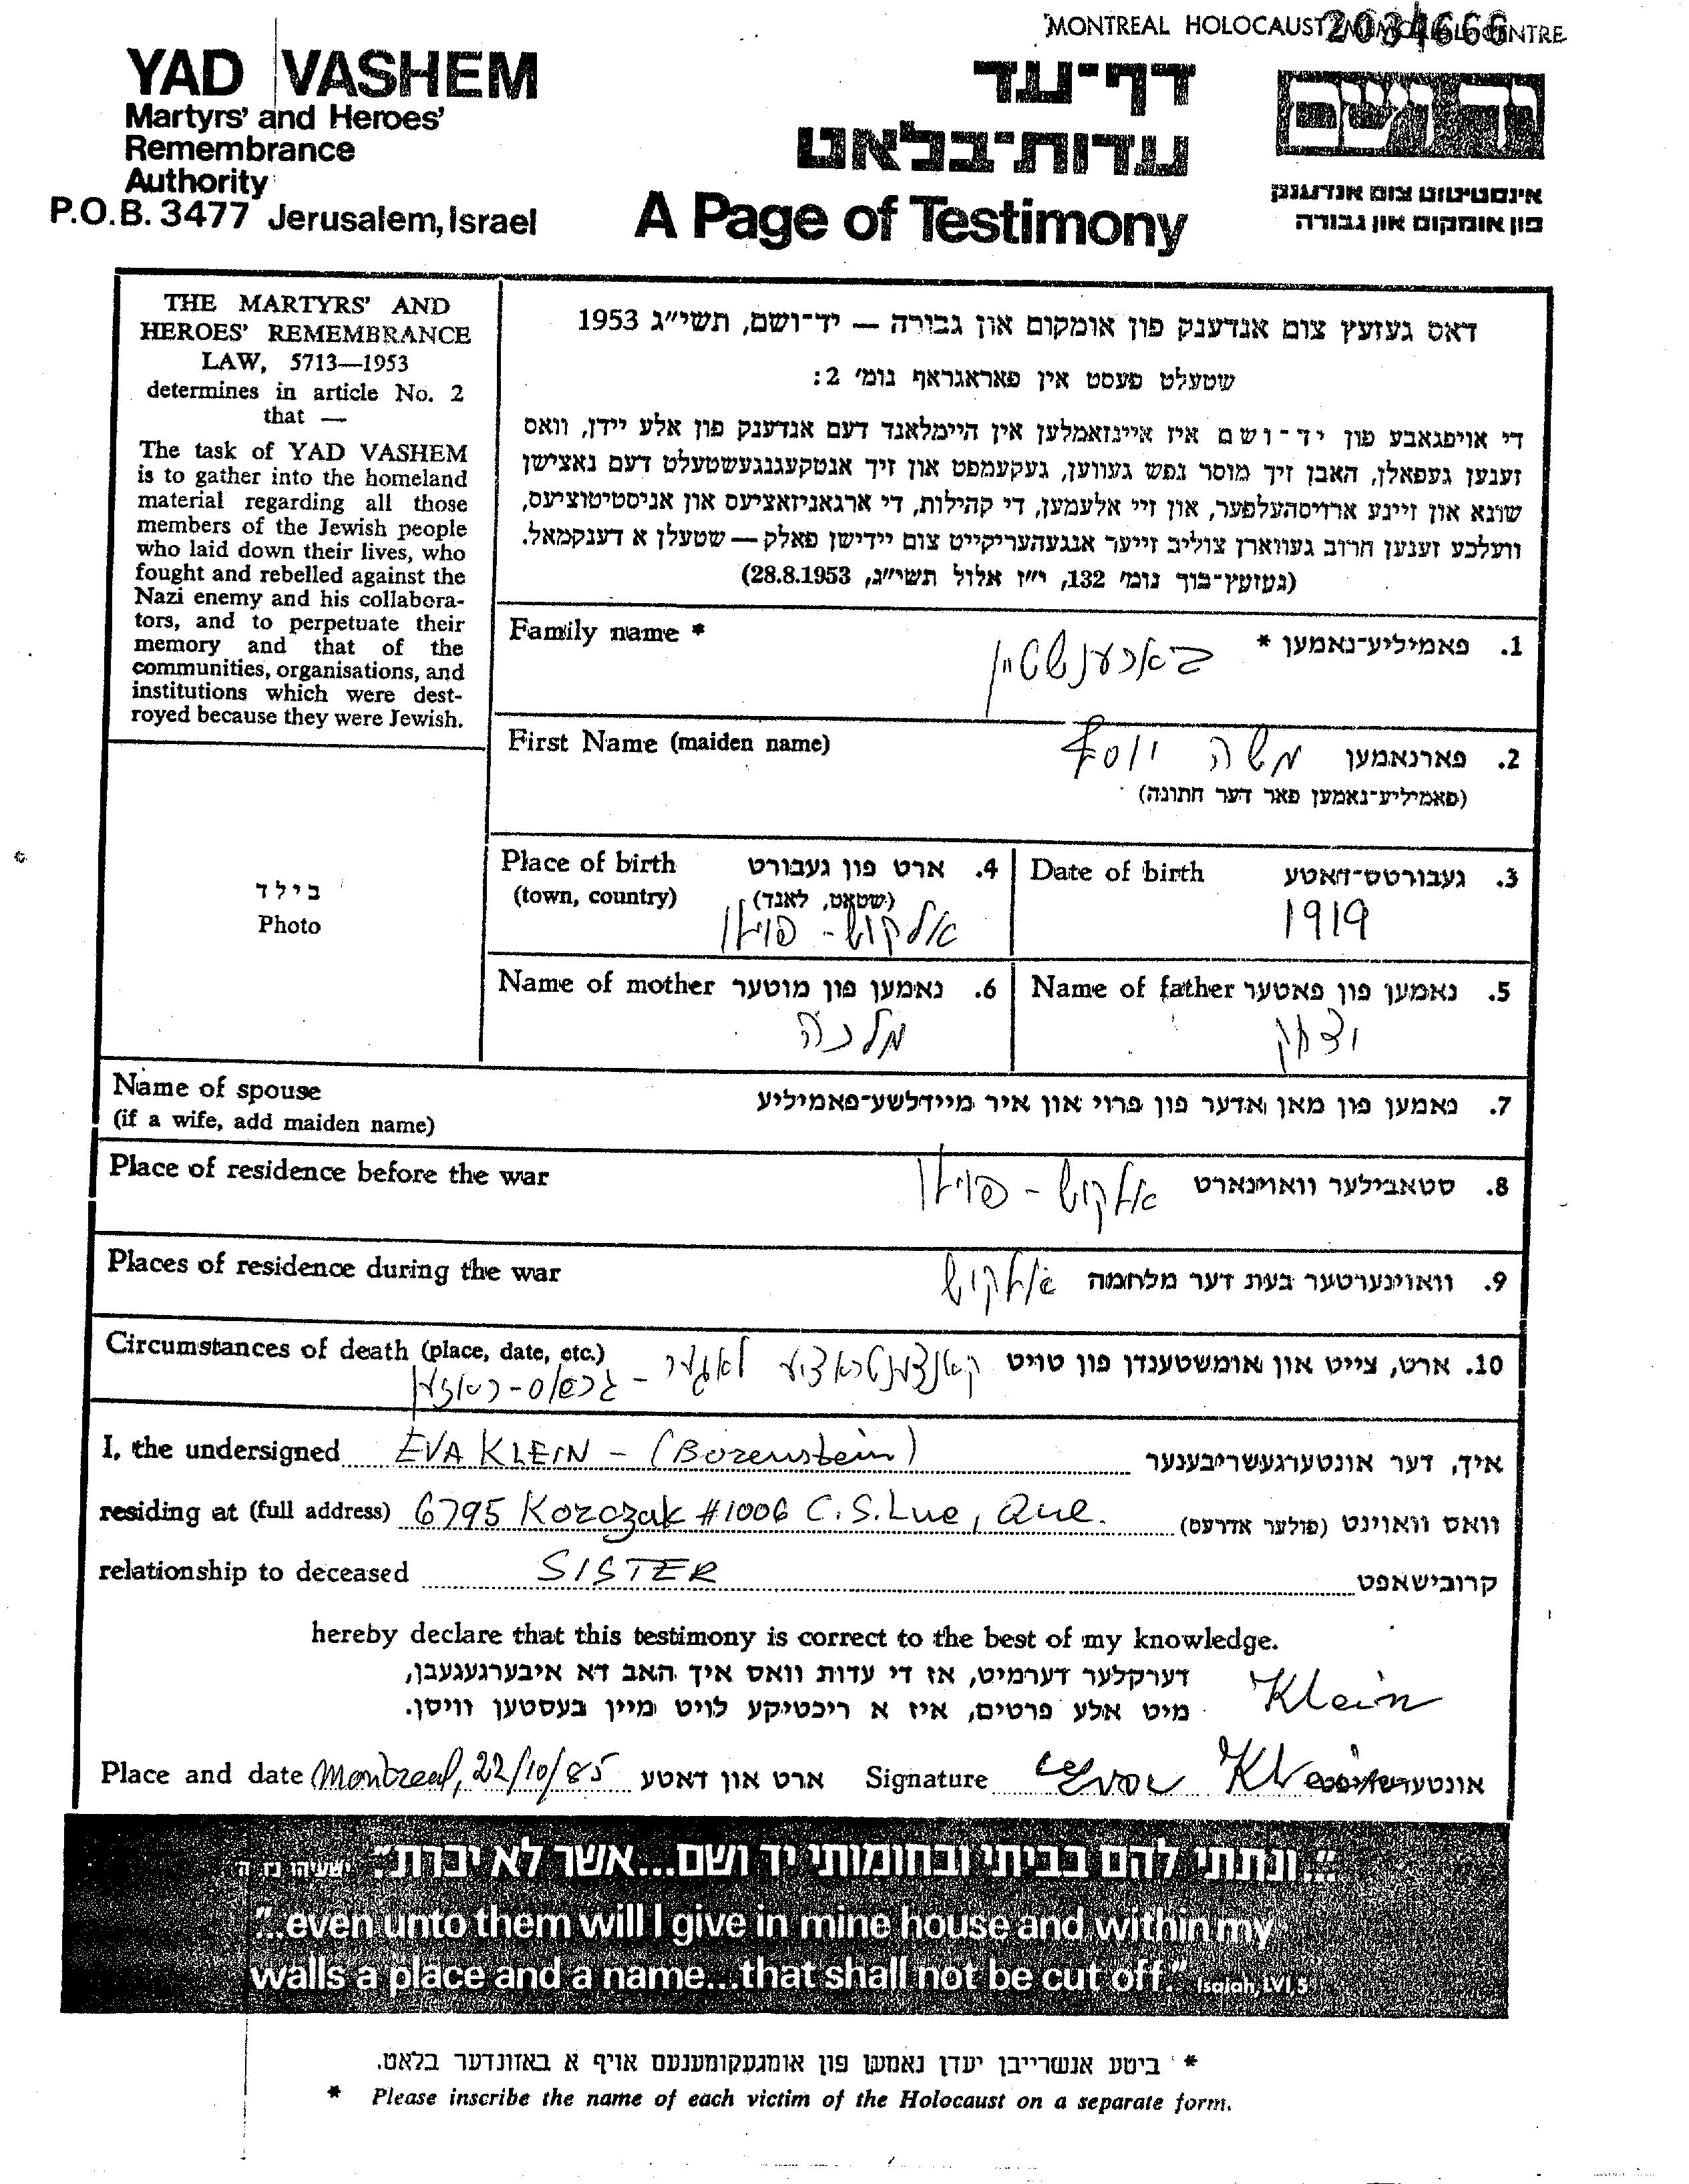 MONTREAL HOLOCAUST
2034666
YAD VASHEM
Martyrs' and Heroes'
Remembrance
Authority
P.O.B. 3477 Jerusalem, Israel
דף־עד
עדות־בלאט
A Page of Testimony
יד ושם
אינסטיטוט צום אנדענק
פון אומקום און גבורה
THE MARTYRS' AND
HEROES' REMEMBRANCE
LAW, 5713—1953
determines in article No. 2
that —
The task of YAD VASHEM
is to gather into the homeland
material regarding all those
members of the Jewish people
who laid down their lives, who
fought and rebelled against the
Nazi enemy and his collabora-
tors, and to perpetuate their
memory and that of the
communities, organisations, and
institutions which were dest-
royed because they were Jewish.
דאס געזעץ צום אנדענק פון אומקום און גבורה — יד־ושם, תשי״ג 1953
שטעלט פעסט אין פאראגראף נומ׳ 2:
די אויפגאבע פון יד־ושם איז איינזאמלען אין היימלאנד דעם אנדענק פון אלע יידן, וואס
זענען געפאלן, האבן זיך מוסר נפש געווען, געקעמפט און זיך אנטקעגנגעשטעלט דעם נאצישן
שונא און זיינע ארויסהעלפער, און זיי אלעמען, די קהילות, די ארגאניזאציעס און אניסטיטוציעס,
וועלכע זענען חרוב געווארן צוליב זייער אנגעהעריקייט צום יידישן פאלק — שטעלן א דענקמאל.
(געזעץ־בוך נומ׳ 132, י״ז אלול תשי״ג, 28.8.1953)
Family name * בארענשטיין פאמיליע־נאמען * .1
First Name (maiden name) משה יוסף פארנאמען .2
(פאמיליע־נאמען פאר דער חתונה)
בילד
Photo
Place of birth ארט פון געבורט .4
(town, country) (שטאט, לאנד)
אלקוש - פוילן
Date of birth געבורטס־דאטע .3
1919
Name of mother נאמען פון מוטער .6
מלכה
Name of father נאמען פון פאטער .5
יצחק
Name of spouse נאמען פון מאן אדער פון פרוי און איר מיידלשע־פאמיליע .7
(if a wife, add maiden name)
Place of residence before the war אלקוש - פוילן סטאבילער וואוינארט .8
Places of residence during the war אלקוש וואוינערטער בעת דער מלחמה .9
Circumstances of death (place, date, etc.) קאנצענטראציע לאגער - ארט, צייט און אומשטענדן פון טויט .10
גראס-ראזען
I, the undersigned EVA KLEIN - (Borenstein) איך, דער אונטערגעשריבענער
residing at (full address) 6795 Korczak #1006 C.S.Luc, Que. וואס וואוינט (פולער אדרעס)
relationship to deceased SISTER קרובישאפט
hereby declare that this testimony is correct to the best of my knowledge.
דערקלער דערמיט, אז די עדות וואס איך האב דא איבערגעגעבן,
מיט אלע פרטים, איז א ריכטיקע לויט מיין בעסטען וויסן.
Klein
Place and date Montreal, 22/10/85 ארט און דאטע Signature Eva Klein
״...ונתתי להם בביתי ובחומותי יד ושם...אשר לא יכרת״ ישעיהו נו ה
"...even unto them will I give in mine house and within my
walls a place and a name...that shall not be cut off." Isaiah, LVI,5
* ביטע אנשרייבן יעדן נאמען פון אומגעקומענעם אויף א באזונדער בלאט.
* Please inscribe the name of each victim of the Holocaust on a separate form.